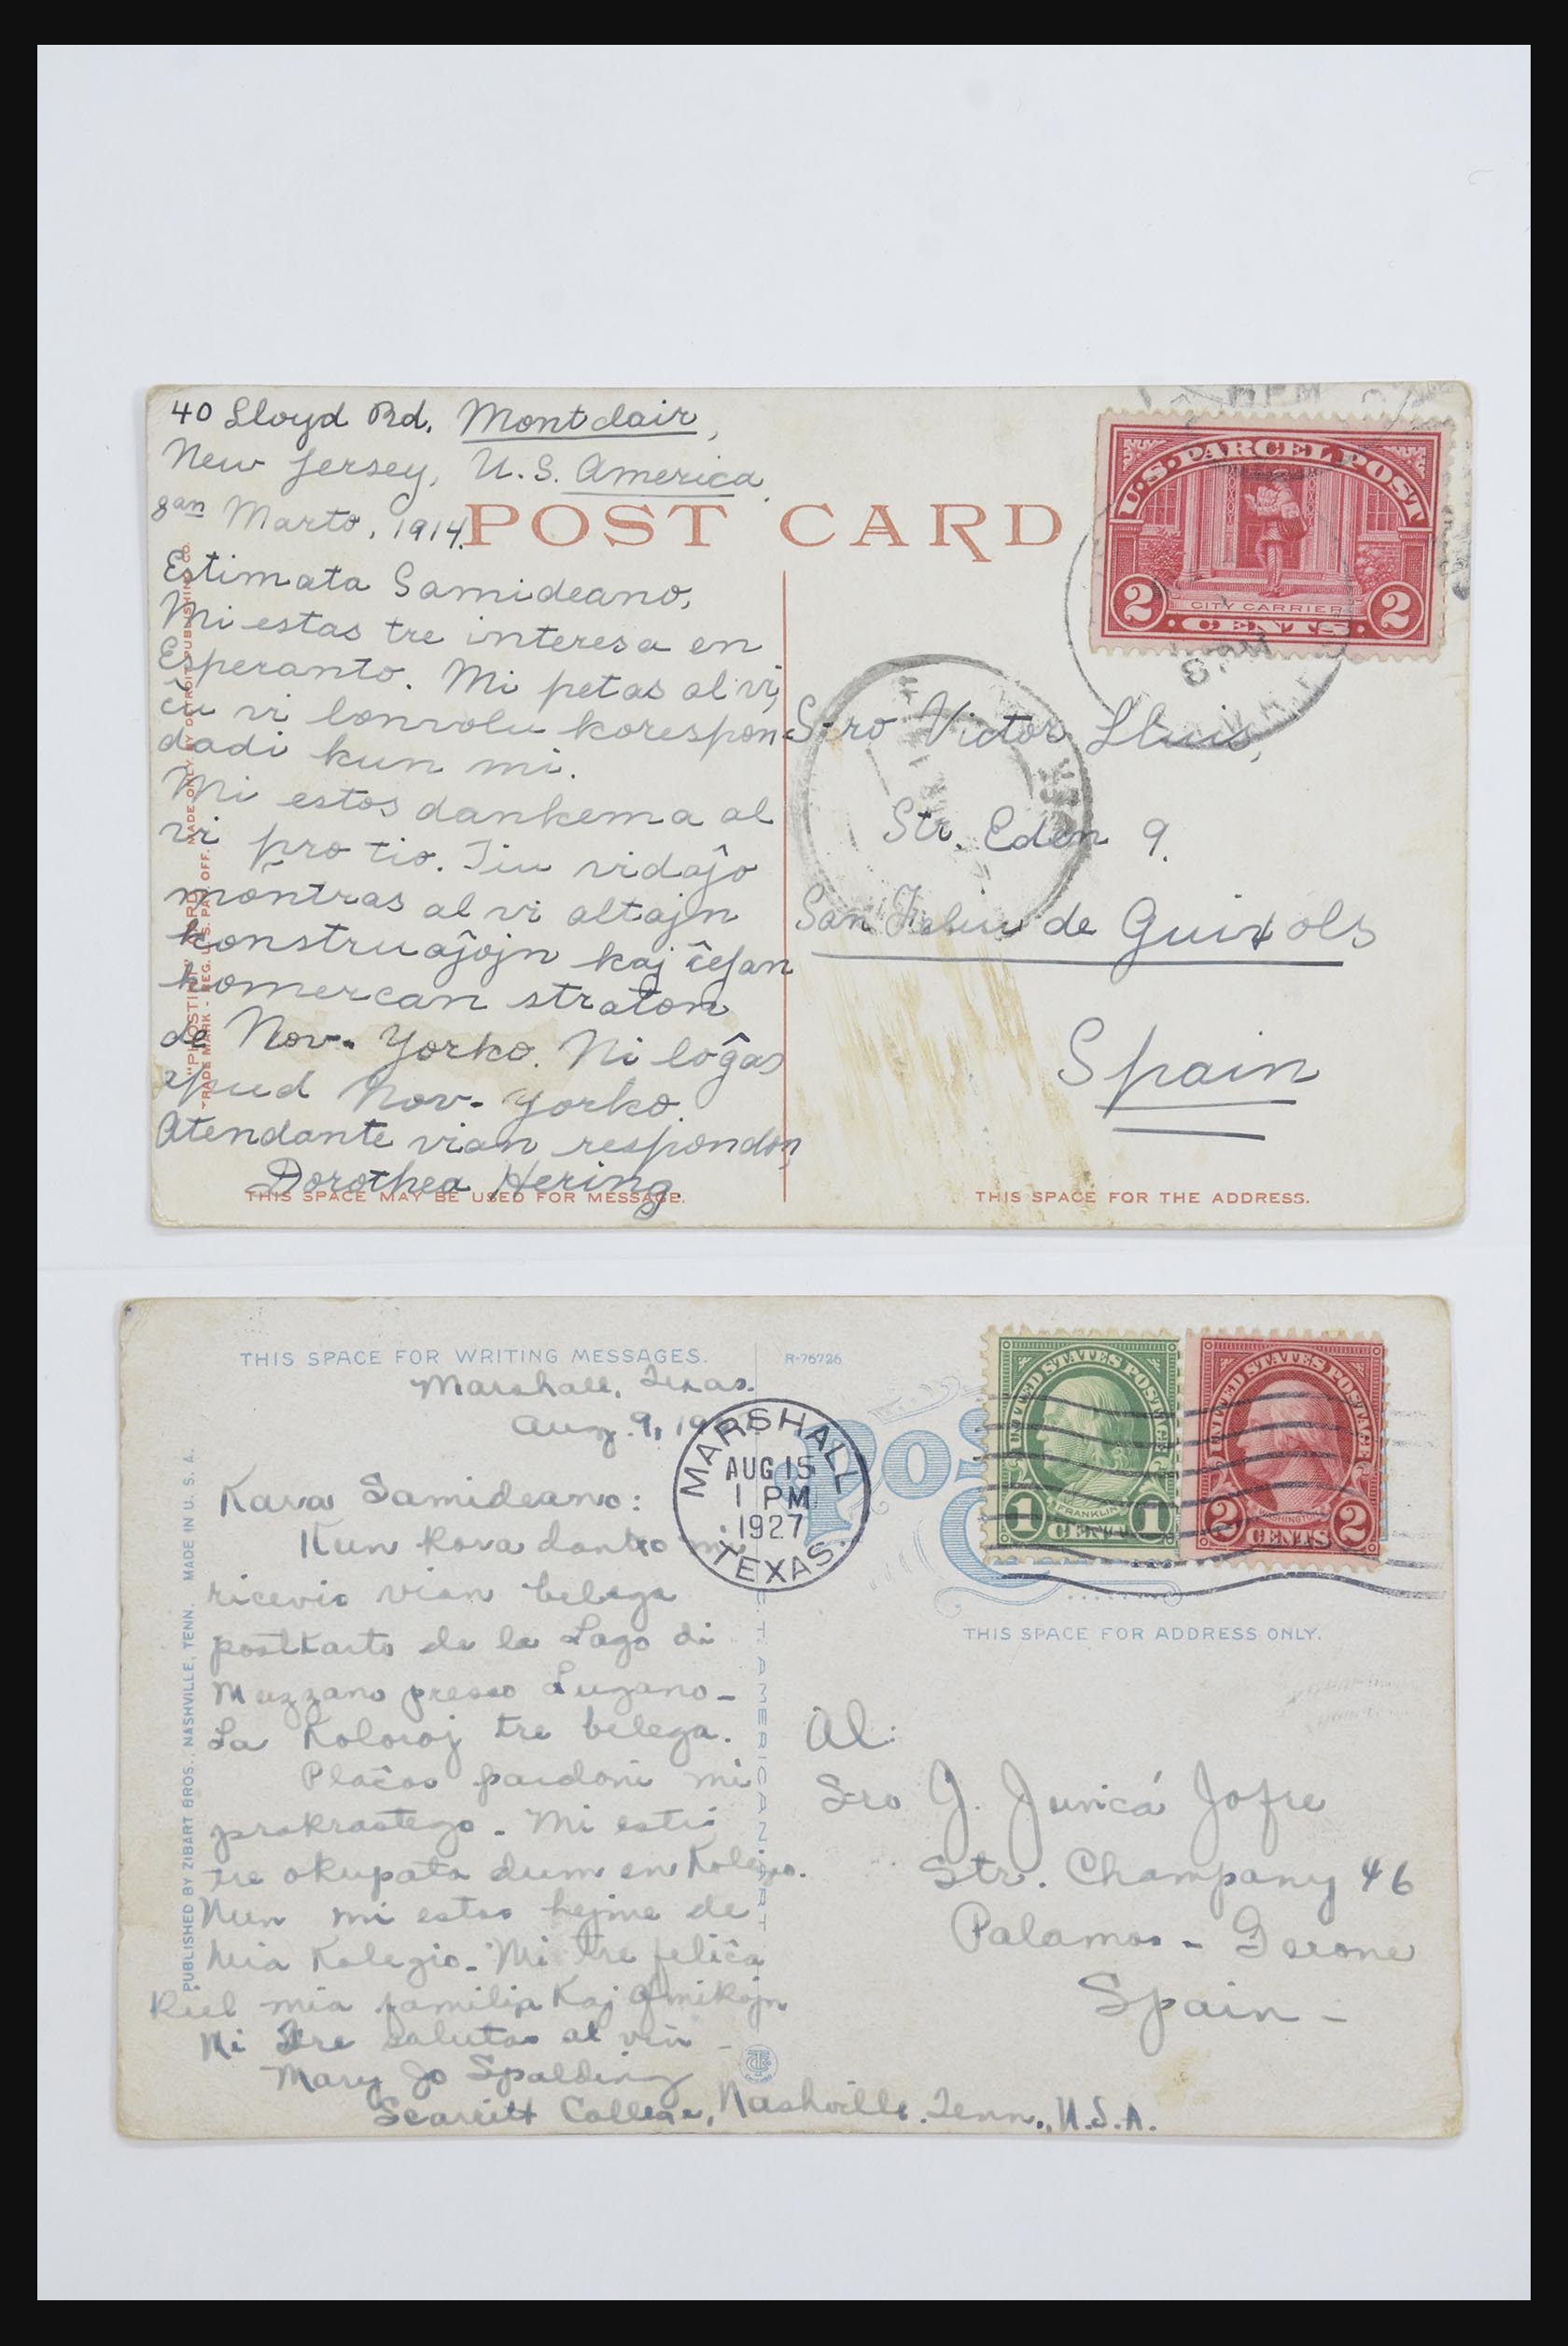 40 Lloyd Rd. Montclair,
New Jersey, U.S. America.
8an Marto, 1914.
POST CARD
Estimata Samideano,
Mi estas tre interesa en
Esperanto. Mi petas al vi,
ĉu vi bonvolu korespon-
dadi kun mi.
Mi estos dankema al
vi pro tio. Tiu vidaĵo
montras al vi altajn
konstruaĵojn kaj ĉefan
komercan straton
de Nov-Yorko. Ni loĝas
apud Nov-Yorko.
Atendante vian respondon,
Dorothea Hering.
THIS SPACE MAY BE USED FOR MESSAGE.
"PHOSTINT" CARD MADE ONLY BY DETROIT PUBLISHING CO.
TRADE MARK - REG. U.S. PAT. OFF.
U.S. PARCEL POST
CITY CARRIER
2 CENTS 2
S-ro Victor Lluis,
Str. Eden 9.
San Feliu de Guixols
Spain
THIS SPACE FOR THE ADDRESS.
THIS SPACE FOR WRITING MESSAGES.
R-76726
Marshall, Texas.
Aug. 9, 19
MARSHALL
AUG 15
1 PM
1927
TEXAS.
Kara Samideano:
Kun kora danko mi
ricevis vian belega
postkarto de la Lago di
Muzzano presso Lugano-
La Koloroj tre belega.
Plaĉas pardoni mi
prokrastego. Mi estis
tre okupata dum en Kolegio.
Nun mi estas hejme de
mia Kolegio. Mi tre feliĉa
kiel mia familia Kaj amikojn
Mi tre salutas al vin -
Mary Jo Spalding
Scarritt College, Nashville, Tenn., U.S.A.
PUBLISHED BY ZIBART BROS., NASHVILLE, TENN. MADE IN U. S. A.
C. T. AMERICAN ART
POS
UNITED STATES POSTAGE
FRANKLIN
1 CENT 1
UNITED STATES POSTAGE
WASHINGTON
2 CENTS 2
THIS SPACE FOR ADDRESS ONLY.
Al:
S-ro J. Juncá Jofre
Str. Champany 46
Palamos - Gerone
Spain -